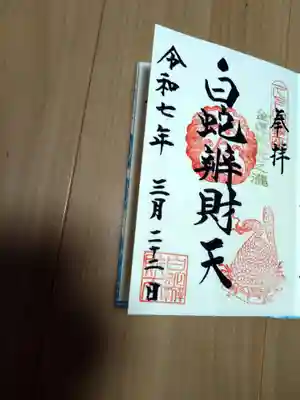 奉拝
白蛇辨財天
令和七年 三月二十二日